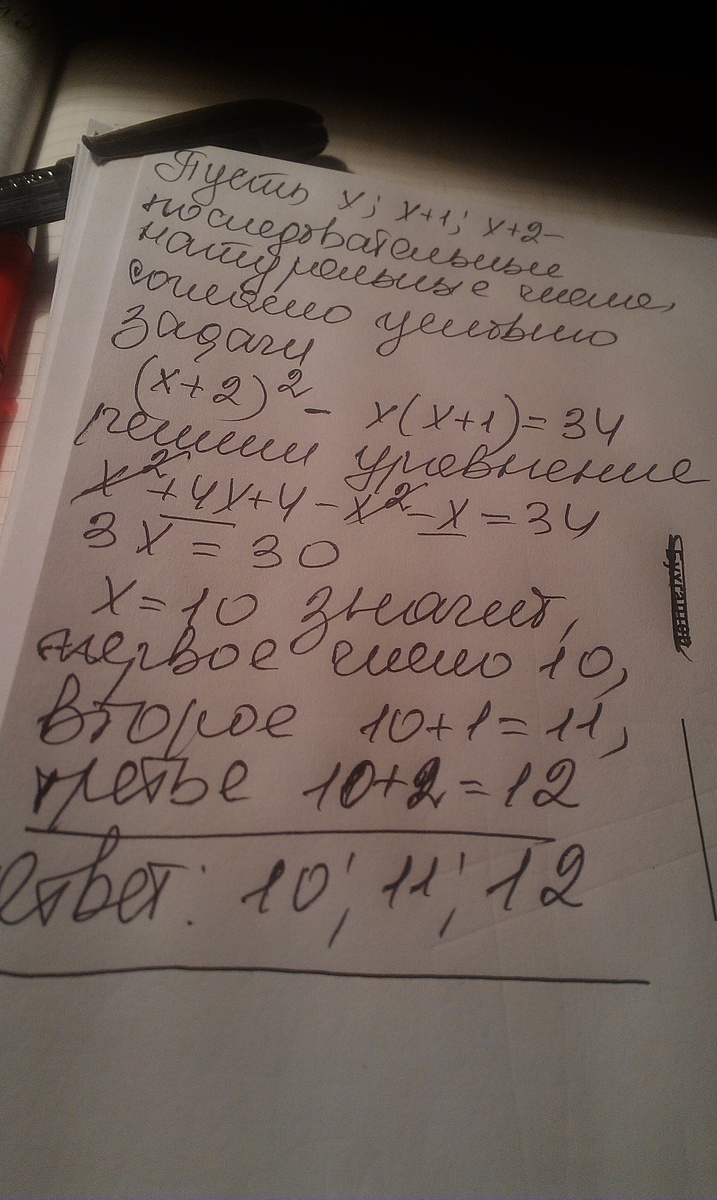 Пусть x; x+1; x+2-
последовательные
натуральные числа,
согласно условию
задачи
(x+2)² - x(x+1)=34
решим уравнение
x²+4x+4-x²-x=34
3x=30
x=10 значит,
первое число 10,
второе 10+1=11,
третье 10+2=12
ответ: 10; 11; 12